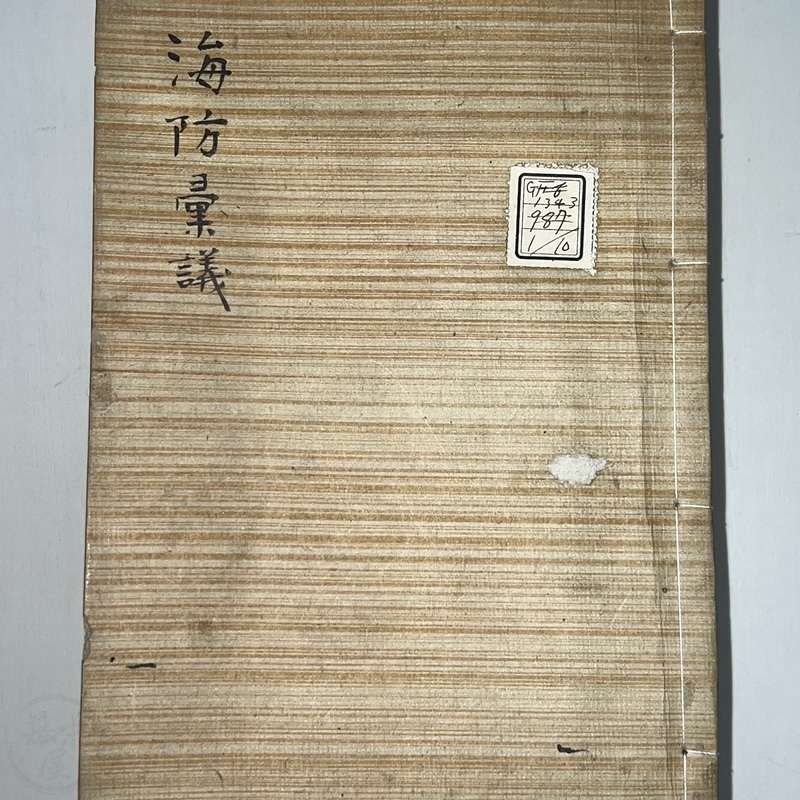 海防彙議
1343
987
1/10
一